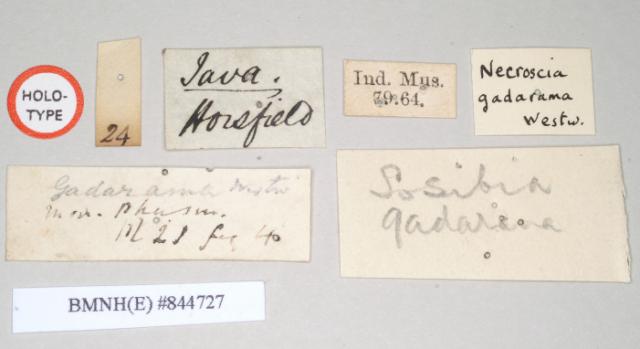 HOLO-
TYPE
24
Java.
Horsfield
Ind. Mus.
79.64.
Necroscia
gadarama
Westw.
Gadarama Westw
Mon. Phasm.
Pl 21 fig 40
Sosibia
gadarena
BMNH(E) #844727